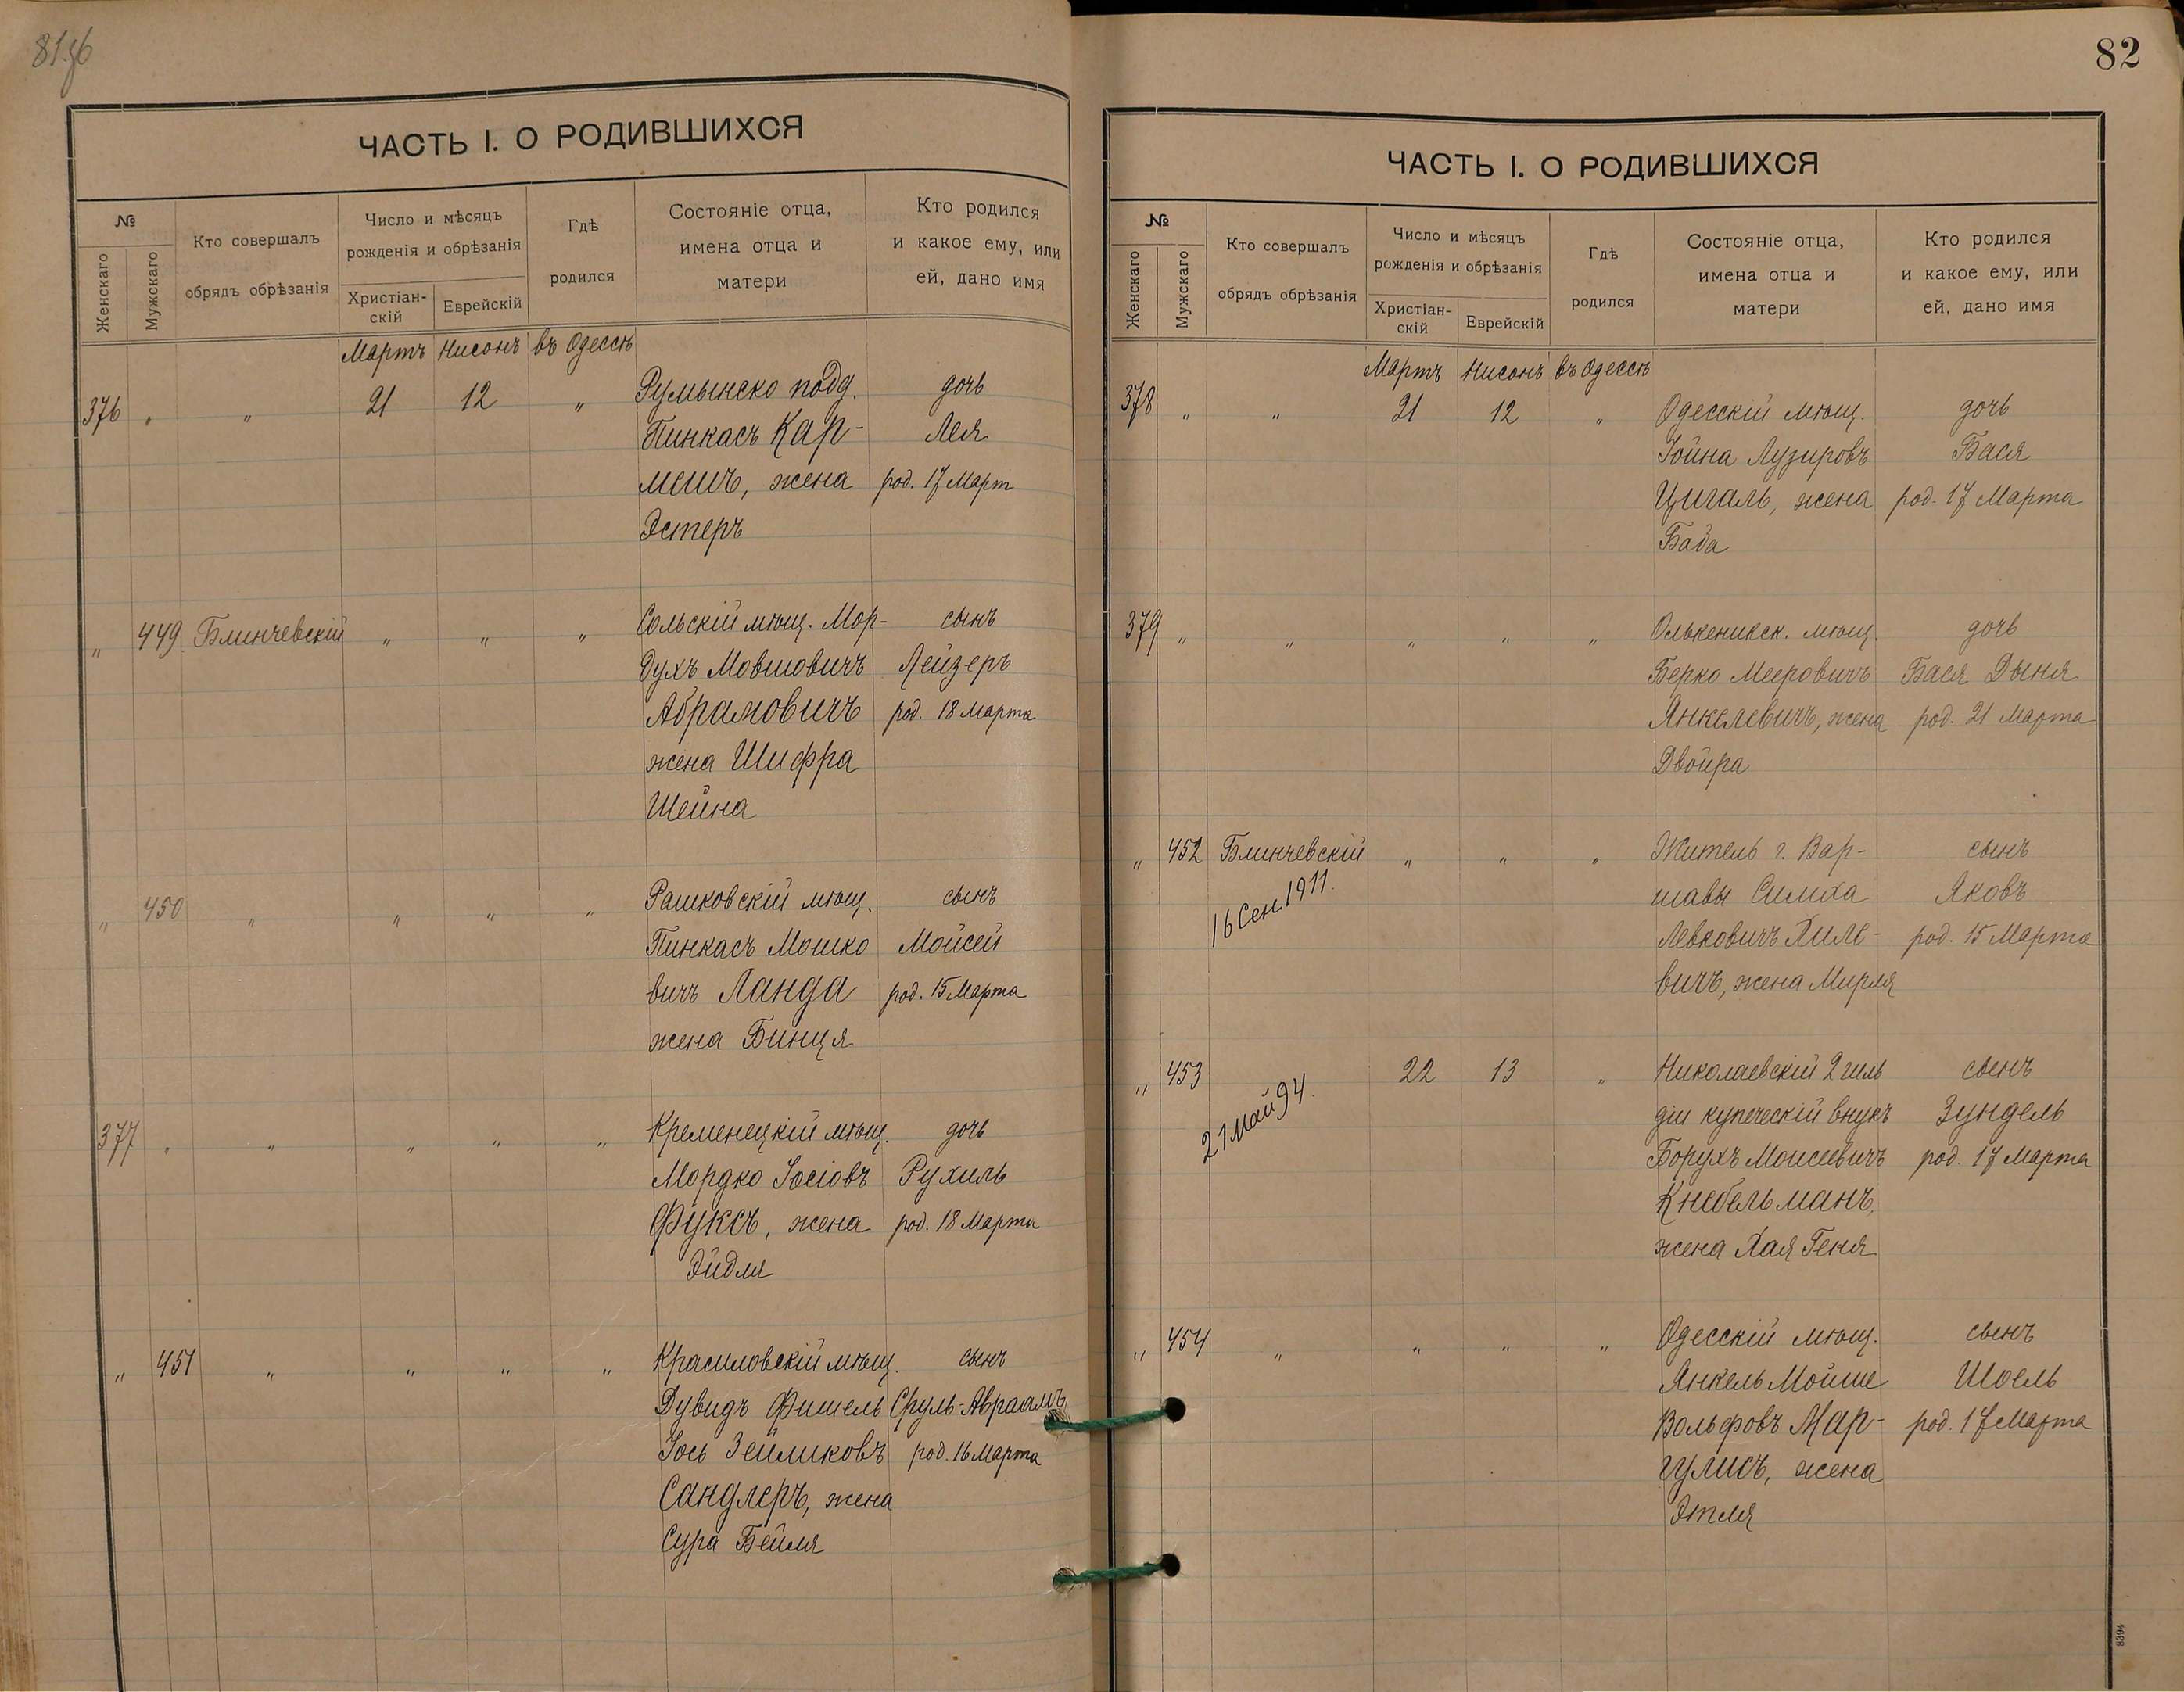 81об
ЧАСТЬ I. О РОДИВШИХСЯ
№
Женскаго
Мужскаго
Кто совершалъ
обрядъ обрѣзанія
Число и мѣсяцъ
рожденія и обрѣзанія
Христіан-
скій
Еврейскій
Гдѣ
родился
Состояніе отца,
имена отца и
матери
Кто родился
и какое ему, или
ей, дано имя
Мартъ Нисонъ въ Одессѣ
376 " " 21 12 " Румынско подд. дочь
Пинкасъ Кар- Лея
мешъ, жена род. 17 Март
Эстеръ
" 449 Блинчевскій " " " Сольскій мѣщ. Мор- сынъ
духъ Мовшовичъ Лейзеръ
Абрамовичъ род. 18 Марта
жена Шифра
Шейна
" 450 " " " " Рашковскій мѣщ. сынъ
Пинкасъ Мошко Мойсей
вичъ Ланда род. 15 Марта
жена Бинця
377 " " " " " Кременецкій мѣщ. дочь
Мордко Іосіовъ Рухиль
Фуксъ, жена род. 18 Марта
Эйдля
" 451 " " " " Красиловскій мѣщ. сынъ
Дувидъ Фишель Сруль-Авраамъ
Іось Зейликовъ род. 16 Марта
Сандлеръ, жена
Сура Бейля
82
ЧАСТЬ I. О РОДИВШИХСЯ
№
Женскаго
Мужскаго
Кто совершалъ
обрядъ обрѣзанія
Число и мѣсяцъ
рожденія и обрѣзанія
Христіан-
скій
Еврейскій
Гдѣ
родился
Состояніе отца,
имена отца и
матери
Кто родился
и какое ему, или
ей, дано имя
Мартъ Нисонъ въ Одессѣ
378 " " 21 12 " Одесскій мѣщ. дочь
Іойна Лузировъ Бася
Цигаль, жена род. 17 Марта
Баба
379 " " " " " Олькеникск. мѣщ. дочь
Берко Мееровичъ Бася Дыня
Янкелевичъ, жена род. 21 Марта
Двойра
" 452 Блинчевскій " " " Житель г. Вар- сынъ
16 Сен. 1911.
шавы Симха Яковъ
Левковичъ Хиле- род. 15 Марта
вичъ, жена Мирля
" 453 22 13 " Николаевскій 2 гиль сынъ
21 Май 94.
діи купеческій внукъ Зундель
Борухъ Моисеевичъ род. 17 Марта
Кнебельманъ,
жена Хая Геня
" 454 " " " " Одесскій мѣщ. сынъ
Янкель Мойше Шоель
Вольфовъ Мар- род. 17 Марта
гулисъ, жена
Этля
8394